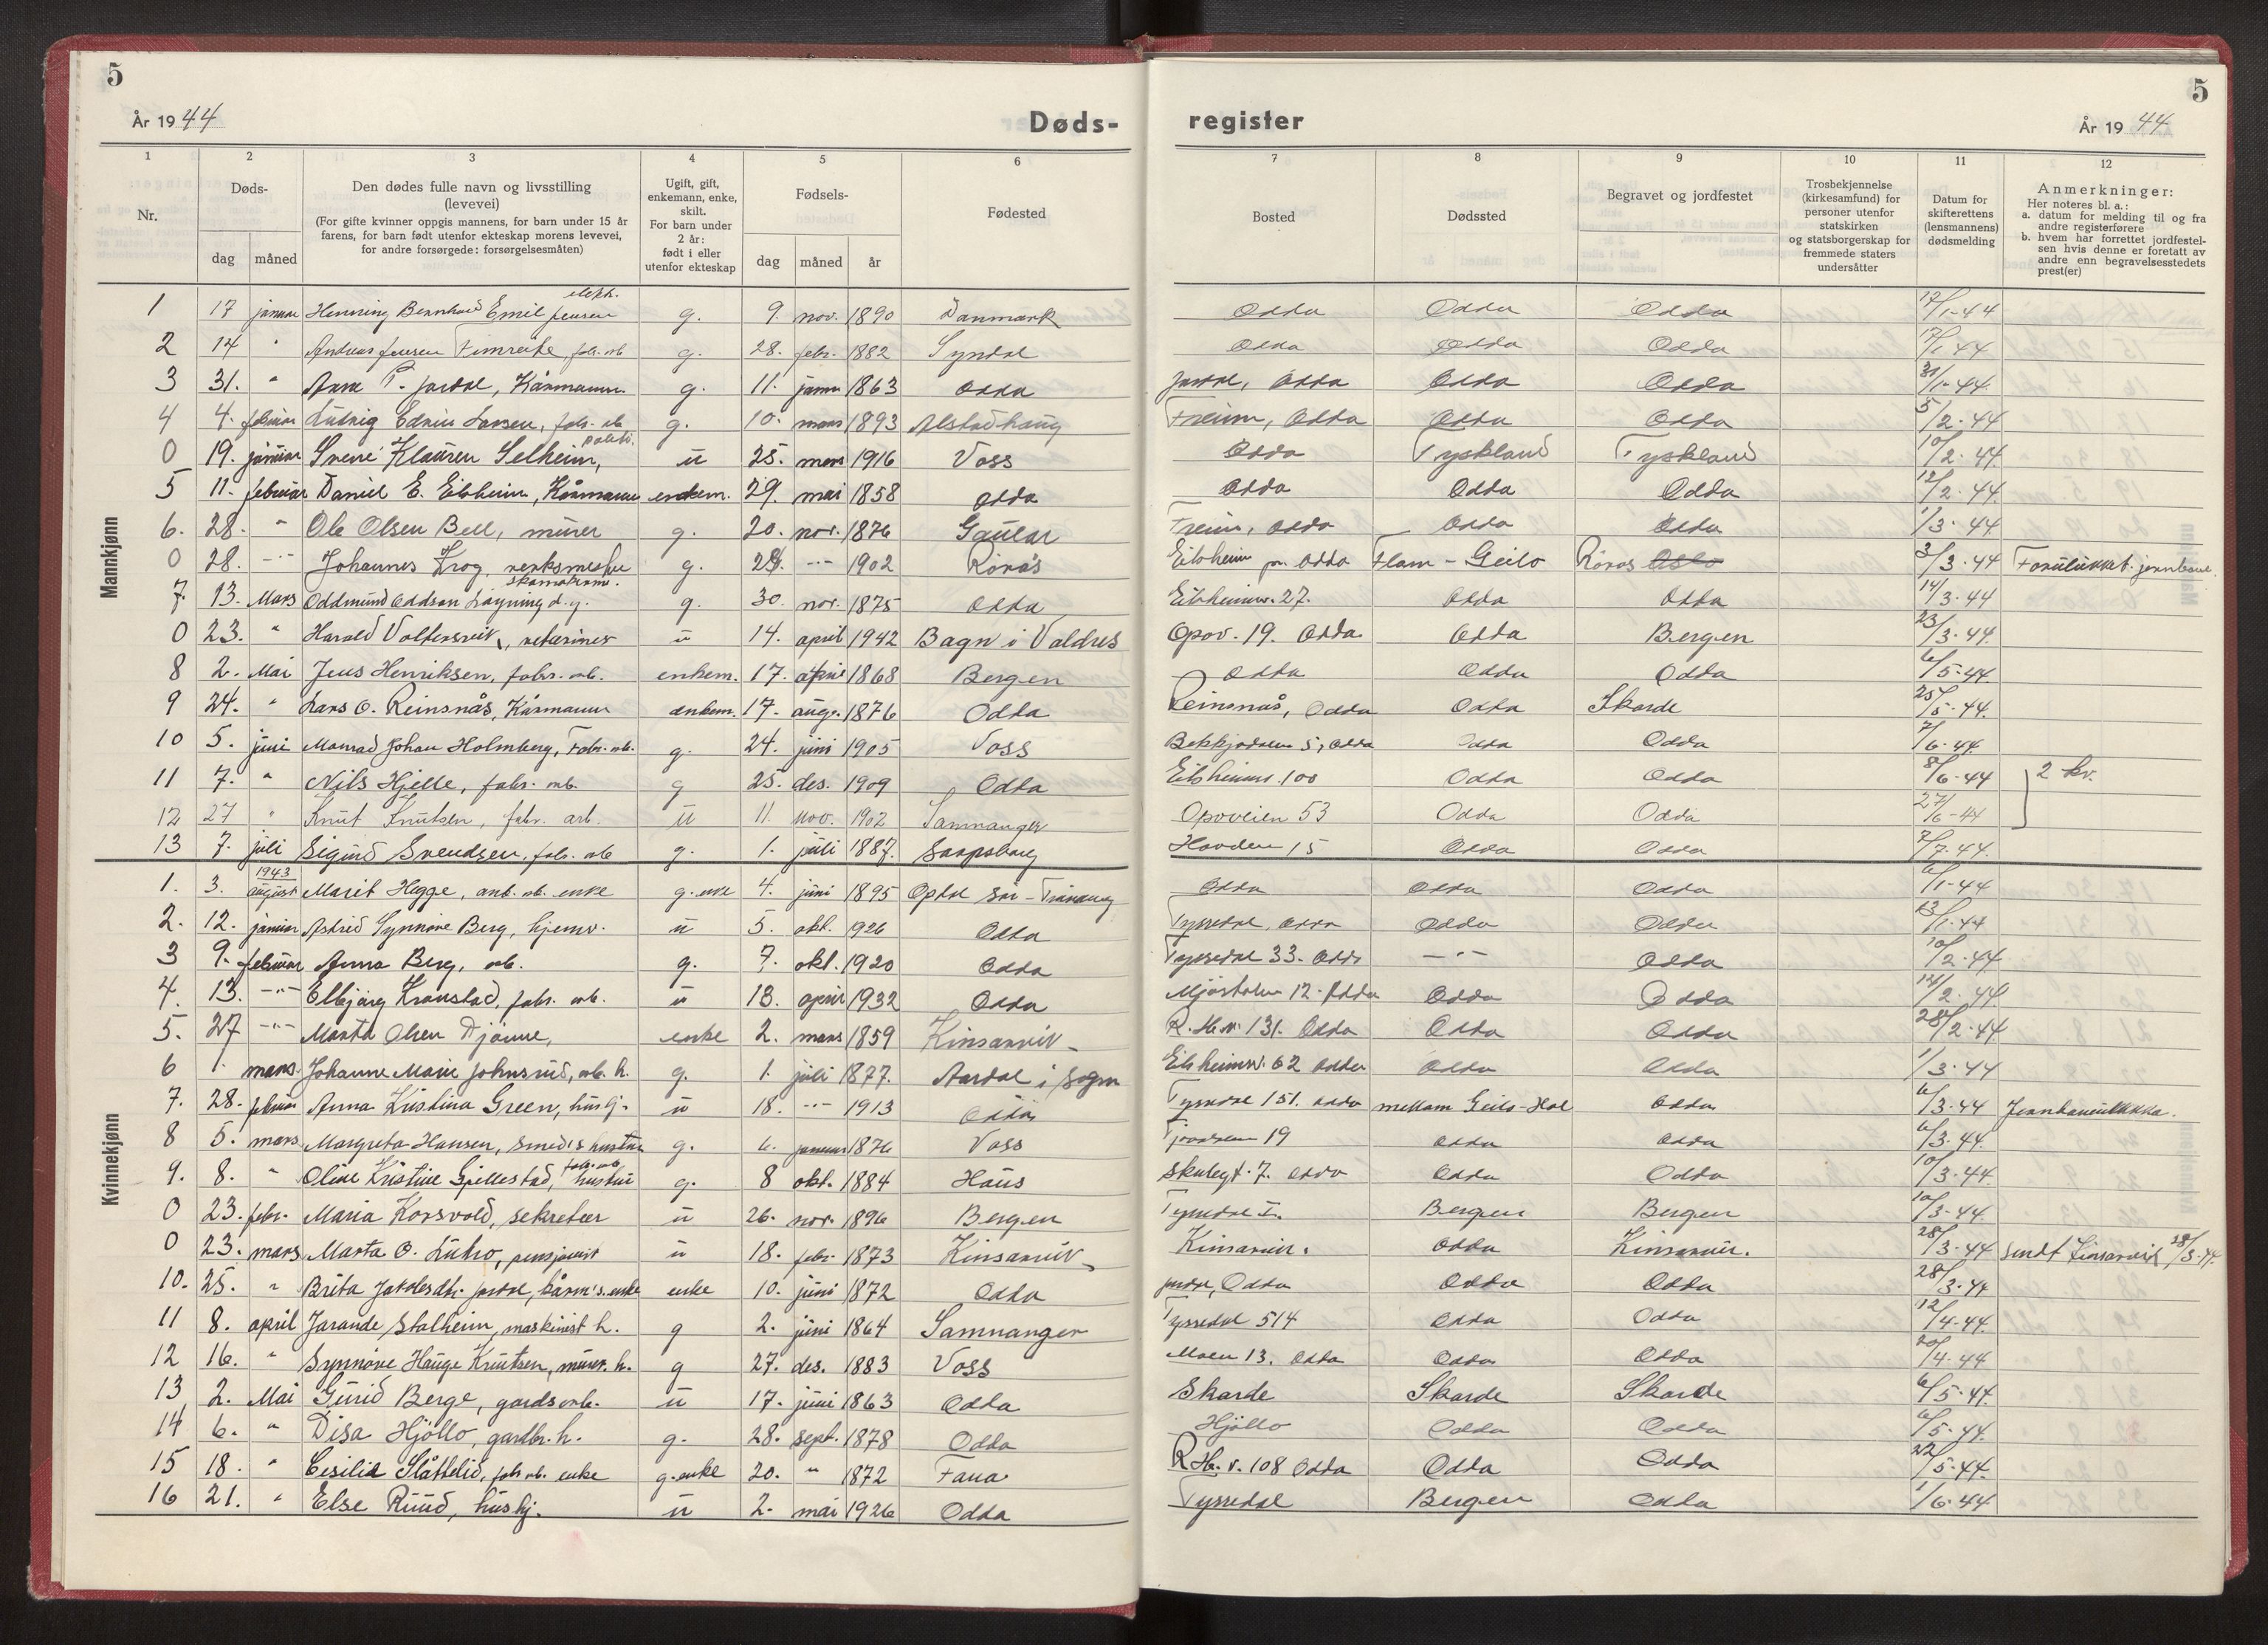 5
5
År 1944
Døds-
register
År 1944
1
2
3
4
5
6
7
8
9
10
11
12
Nr.
Døds-
dag
måned
Den dødes fulle navn og livsstilling
(levevei)
(For gifte kvinner oppgis mannens, for barn under 15 år
farens, for barn født utenfor ekteskap morens levevei,
for andre forsørgede: forsørgelsesmåten)
Ugift, gift,
enkemann, enke,
skilt.
For barn under
2 år:
født i eller
utenfor ekteskap
Fødsels-
dag
måned
år
Fødested
Bosted
Dødssted
Begravet og jordfestet
Trosbekjennelse
(kirkesamfund) for
personer utenfor
statskirken
og statsborgerskap for
fremmede staters
undersåtter
Datum for
skifterettens
(lensmannens)
dødsmelding
Anmerkninger:
Her noteres bl. a.:
a. datum for melding til og fra
andre registerførere
b. hvem har forrettet jordfestel-
sen hvis denne er foretatt av
andre enn begravelsesstedets
prest(er)
Mannkjønn
1 17 januar Henning Bernhard Emil Jensen elektr. g. 9. nov. 1890 Danmark Odda Odda Odda 17/1-44
2 14 " Andreas Jensen Fimreite fabr. arb g. 28. febr. 1882 Syndal Odda Odda Odda 17/1 44
3 31. " Arne T. Jordal, Kårmann. g. 11. janu 1863 Odda Jordal, Odda Odda Odda 31/1-44
4 4. februar Ludvig Edvin Larsen, fabr. arb g. 10. mars 1893 Alstadhaug Freim, Odda Odda Odda 5/2-44
0 19. januar Sverre Klauren Selheim, politi. u 25. mars 1916 Voss Odda Tyskland Tyskland 10/2-44
5 11. februar Daniel E. Eitrheim, Kårmann enkem. 29. mai 1858 Odda Odda Odda Odda 12/2-44
6. 28. " Ole Olsen Bell, murer g. 20. nov. 1876 Gaular Freim, Odda Odda Odda 1/3-44
0 28. -"- Johannes Krog, verksmester g. 29. -"- 1902 Rørås Eitrheim pr. Odda Flam - Geilo Røros Oslo 3/3-44 Forulukket. jernbane
7. 13. Mars Oddmund Oddson Løyning d.y. skomakerm. g. 30. nov. 1875 Odda Eitrheimsv. 27. Odda Odda 14/3-44
0 23. " Harald Voltersvik, veterinær u 14. april 1942 Bagn i Valdres Opov. 19. Odda Odda Bergen 23/3-44.
8 2. Mai Jens Henriksen, fabr. arb. enkem. 17. april 1868 Bergen Odda Odda Odda 6/5-44
9 24. " Lars O. Reinsnås, Kårmann enkem. 17. aug. 1876 Odda Reinsnås, Odda Odda Skarde 25/5-44.
10 5. juni Monrad Johan Holmberg, Fabr. arb. g. 24. juni 1905 Voss Bekkjadalen 5, Odda Odda Odda 7/6-44
11 7. " Nils Hjelle, fabr. arb. g 25. des. 1909 Odda Eitrheims. 100 Odda Odda 8/6-44 2 kv.
12 27 " Knut Knutsen, fabr. arb. u 11. nov. 1902 Samnanger Opoveien 53 Odda Odda 27/6-44
13 7. juli Sigurd Svendsen, fabr. arb g. 1. juli 1887. Sarpsborg Hovden 15 Odda Odda 7/7-44.
Kvinnekjønn
1. 3. 1943 august Marit Hegge, anl. arb. enke g. enke 4. juni 1895 Opdal Sør-Trøndelag Odda Odda Odda 6/1-44
2. 12. januar Astrid Synnøve Berg, hjemv. u 5. okt. 1926 Odda Tyssedal, Odda Odda Odda 13/1-44
3 9. februar Anna Berg, arb. g. 7. okt. 1920 Odda Tyssedal 33. Odda -"- Odda 10/2-44
4. 13. -"- Elbjørg Kronstad, fabr. arb. u 13. april 1932 Odda Mjøsdalen 12. Odda Odda Odda 14/2-44
5. 27 -"- Marta Olsen Djønne, enke 2. mars 1859 Kinsarvik R. H.v. 131. Odda Odda Odda 28/2-44
6 1. mars. Johanne Marie Johnsrud, arb. h. g. 1. juli 1877. Aardal i Sogn Eitrheimsv. 62 Odda Odda Odda 1/3-44
7. 28. februar Anna Kristina Green, hushj. u 18. -"- 1913 Odda Tyssedal 151. Odda mellom Geilo-Hol Odda 6/3-44 Jernbaneulukka.
8 5. mars Margreta Hansen, smed's hustru g. 6. januar 1876 Voss 19 Odda Odda 6/3-44.
9. 8. " Oline Kristine Gjellestad, fabr. arb. hustru g. 8 okt. 1884 Haus Skulegt. 7. Odda Odda Odda 10/3-44.
0 23. febr. Maria Korsvold, sekretær u 26. nov. 1896 Bergen Tyssedal I. Bergen Bergen 10/3-44.
0 23. mars Marta O. Lutro, pensjonist u 18. febr. 1873 Kinsarvik Kinsarvik. Odda Kinsarvik. 28/3-44 sendt Kinsarvik 28/3-44.
10. 25. " Brita Jakobsdtr. Jordal, kårm's. enke enke 10. juni 1872 Odda Jordal, Odda Odda Odda 28/3-44
11 8. april Jarande Stalheim, maskinist h. g 2. juni 1864 Samnanger Tyssedal 514 Odda Odda 12/4-44.
12 16. " Synnøve Hauge Knutsen, murer. h. g 27. des. 1883 Voss Moen 13. Odda Odda Odda 20/4-44
13 2. Mai Gurid Berge, gardsarb. u 17. juni 1863 Odda Skarde Skarde Skarde 6/5-44.
14 6. " Disa Hjøllo, gardbr. h. g. 28. sept. 1878 Odda Hjøllo Odda Odda 6/5-44.
15 18. " Cesilia Slåttelid, fabr. arb. enke g. enke 20. " 1872 Fana R. H. v. 108 Odda Odda Odda 22/5-44.
16 21. " Else Ruud, hushj. u 2. mai 1926 Odda Tyssedal Bergen Odda 1/6-44